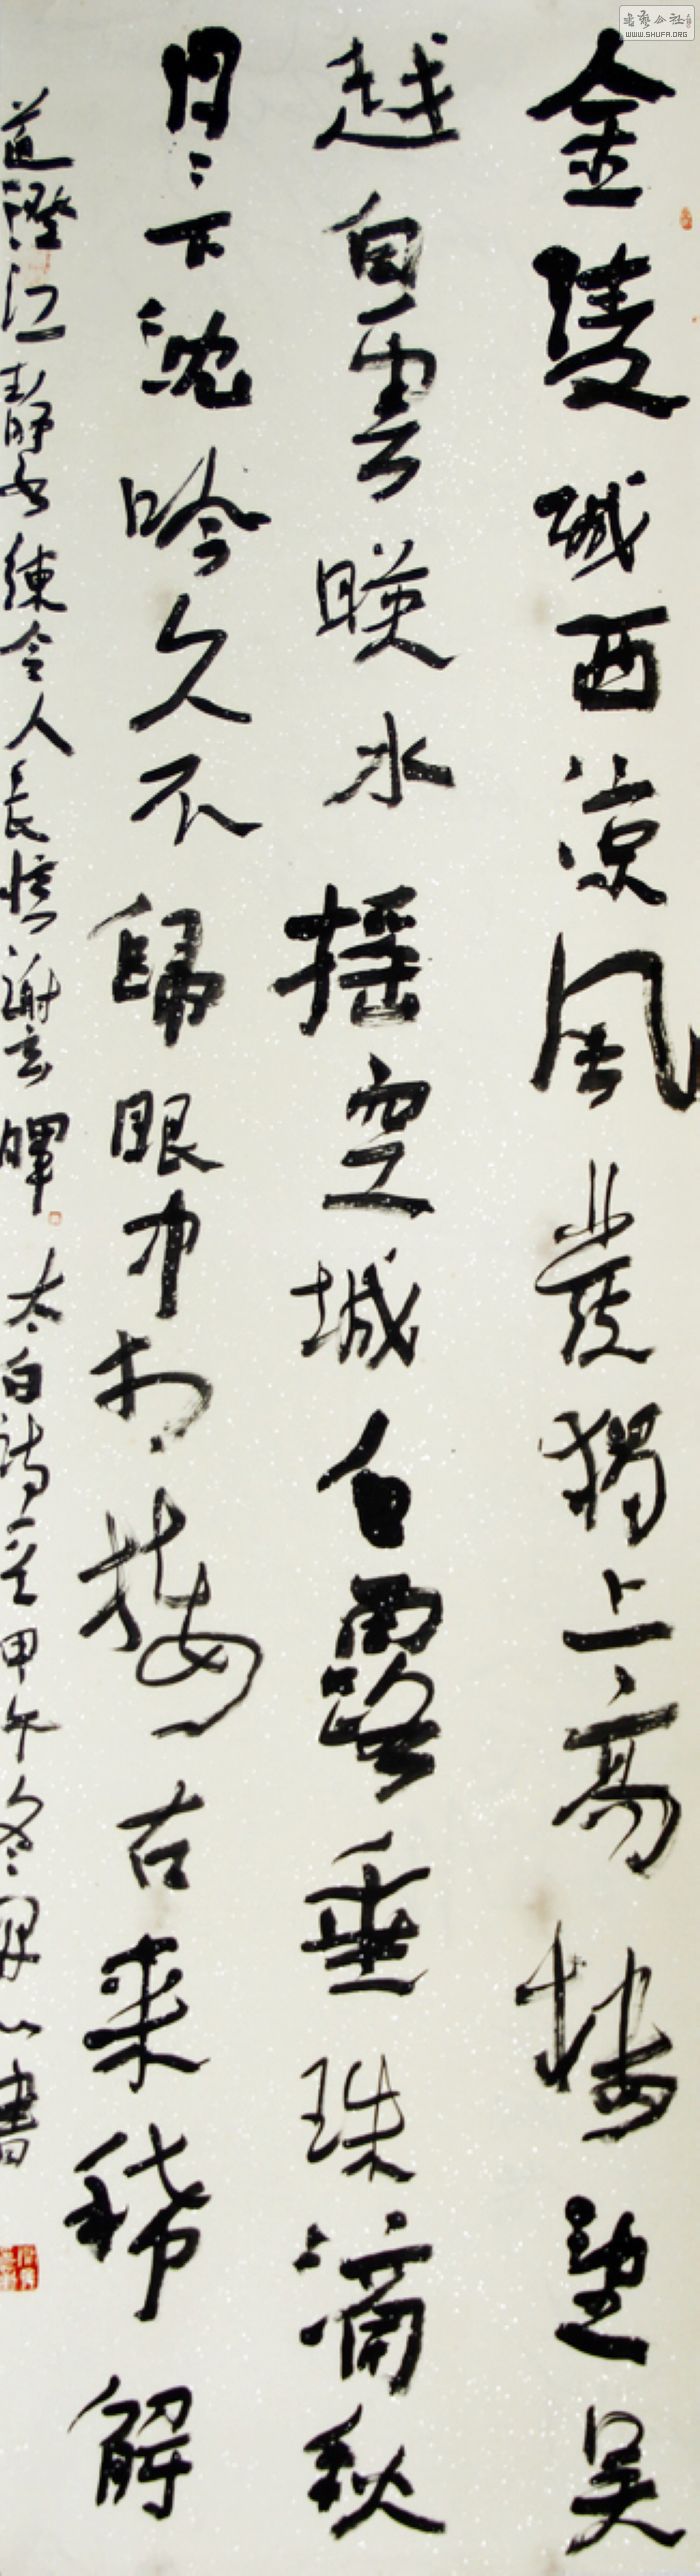 書藝公社
WWW.SHUFA.ORG
金陵城西涼風發獨上高樓望吳
越白雲暎水搖空城白露垂珠滴秋
月〻下沈吟久不歸眼中相接古來稀解
道澄江靜如練令人長憶謝玄暉 太白詩一首甲午冬 書